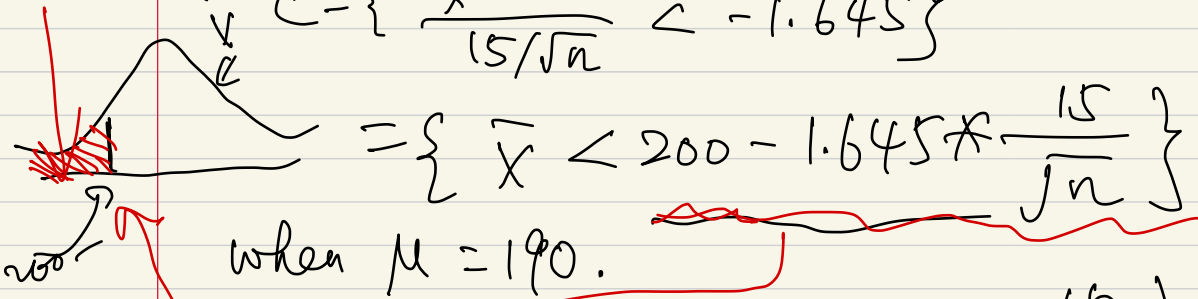 C = { / 15/√n < -1.645}
= { X̄ < 200 - 1.645 * 15/√n }
200
when μ = 190.